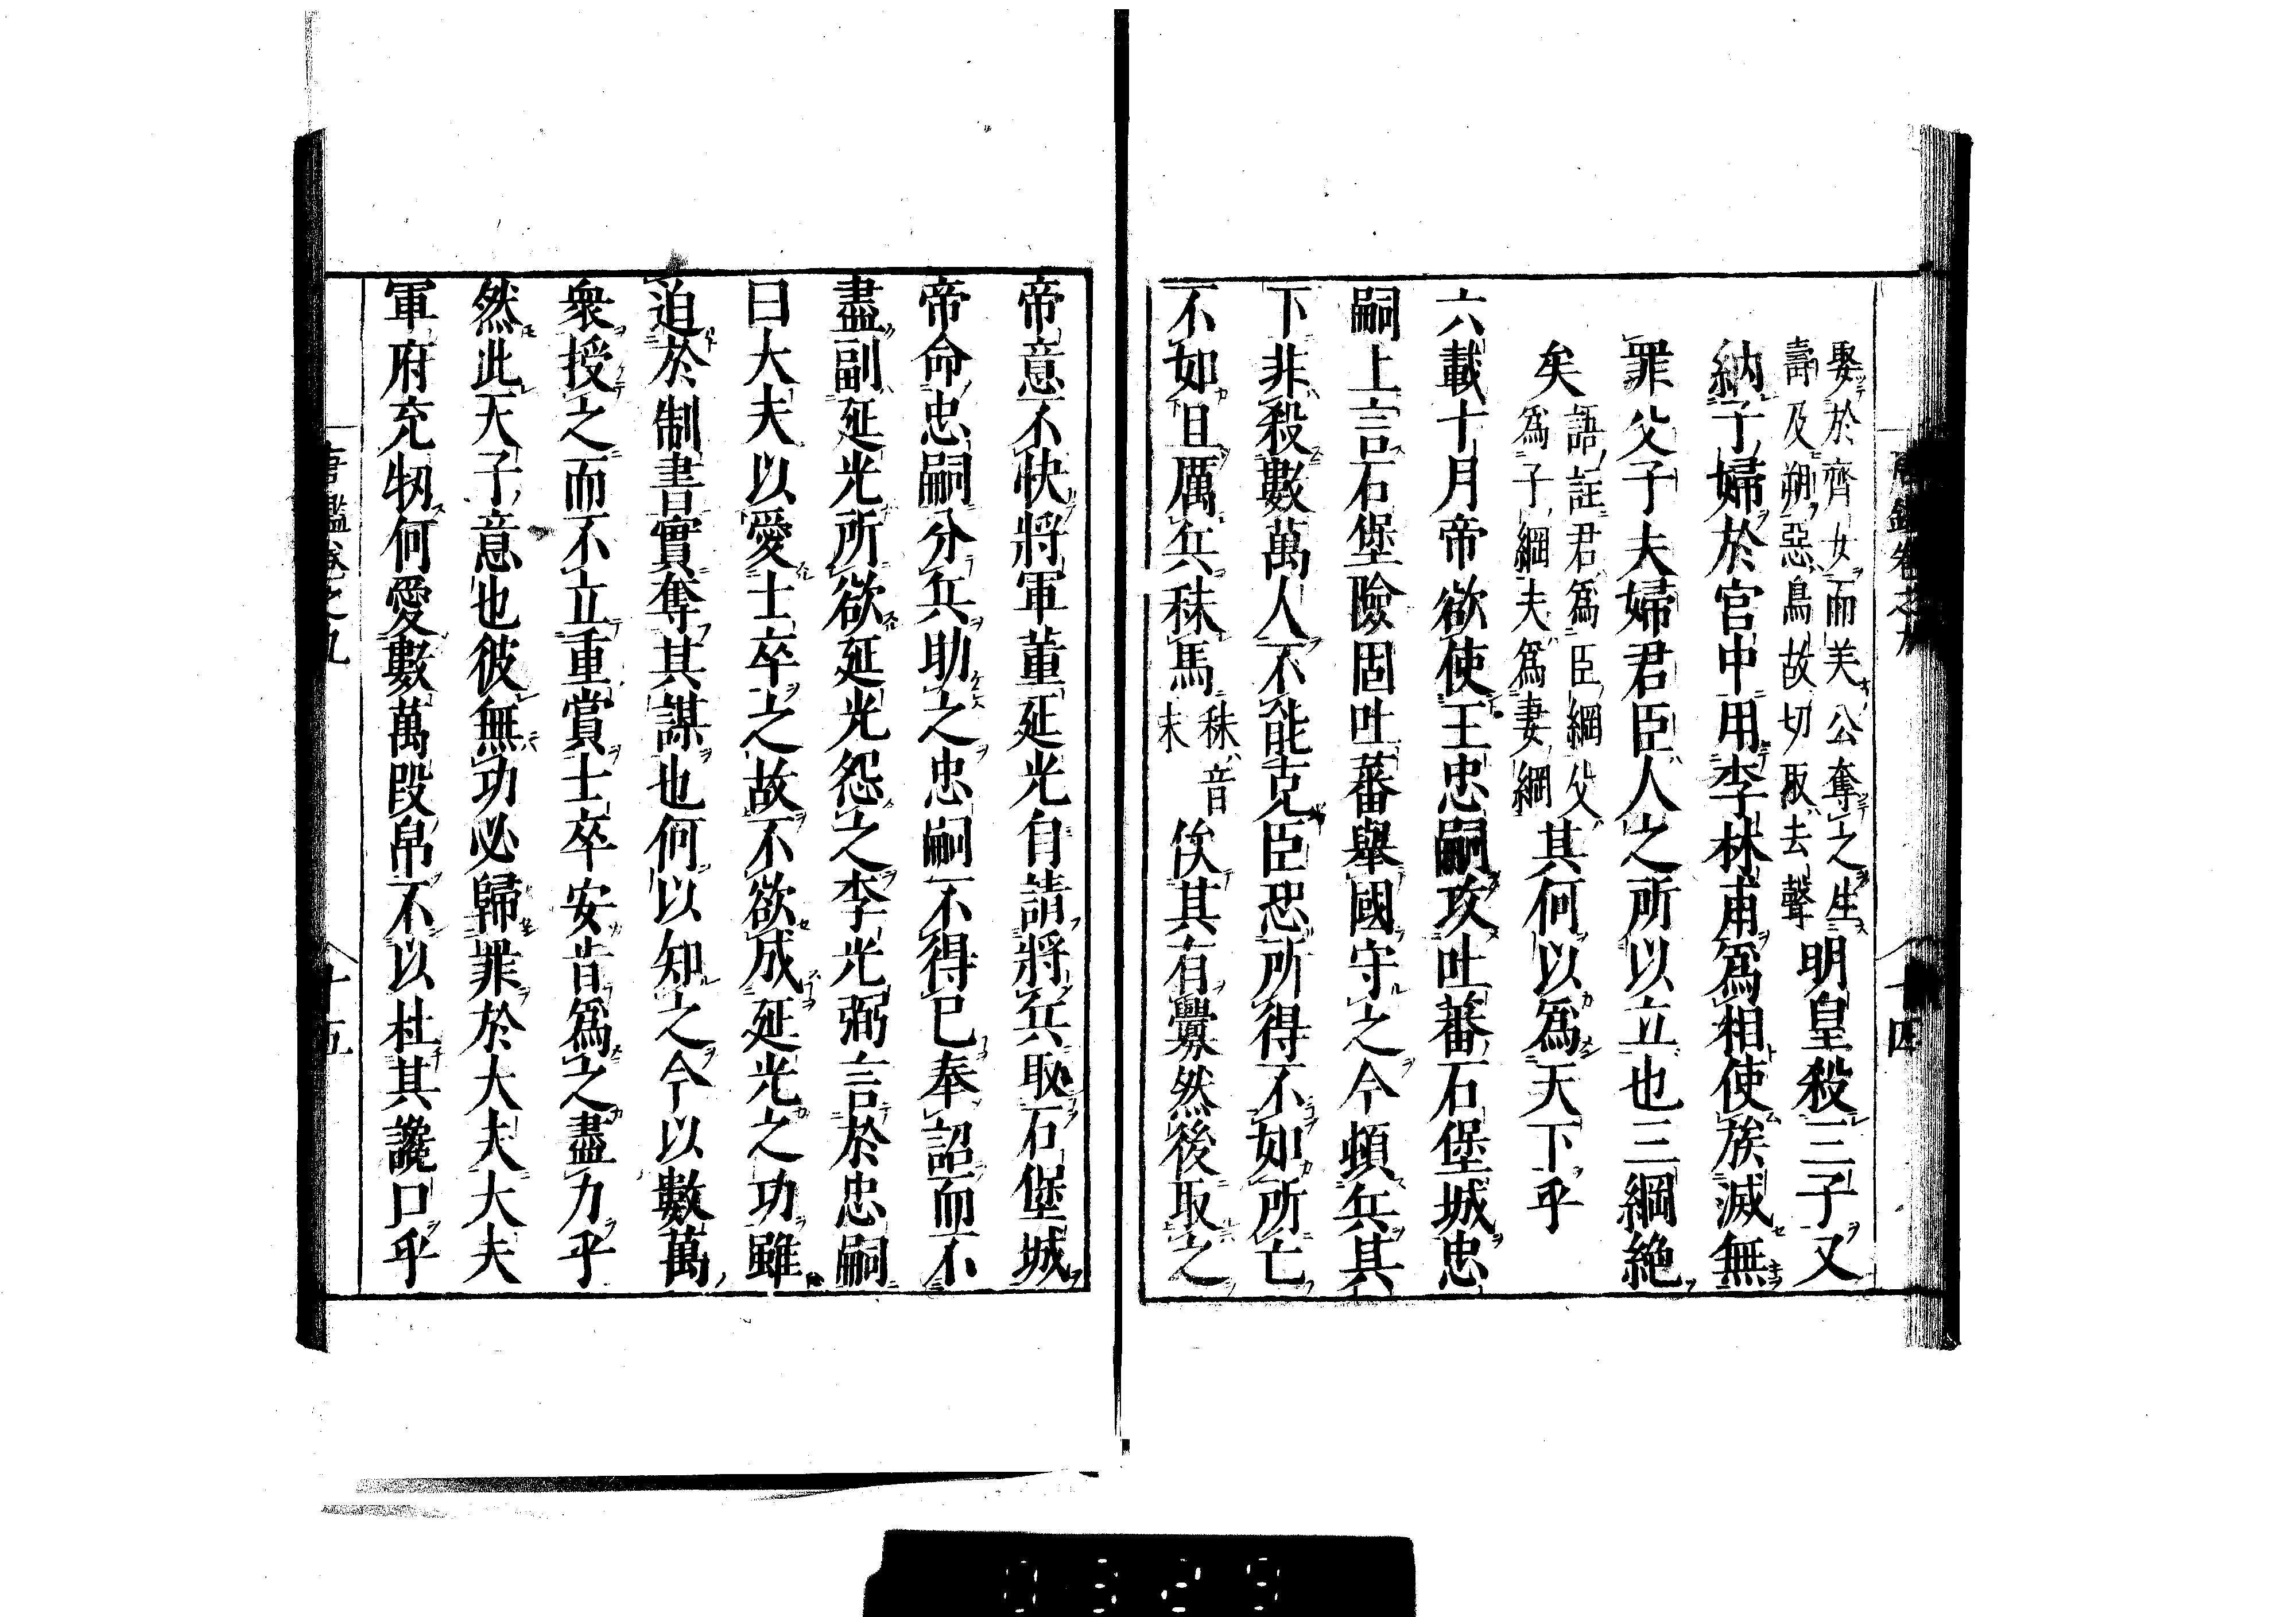 娶於齊女而美公奪之生
壽及朔惡鳥故切取去聲
明皇殺三子又
納子婦於宮中用李林甫爲相使族滅無
罪父子夫婦君臣人之所以立也三綱絶
矣
語註君爲臣綱父
爲子綱夫爲妻綱
其何以爲天下乎
六載十月帝欲使王忠嗣攻吐蕃石堡城忠
嗣上言石堡險固吐蕃舉國守之今頓兵其
下非殺數萬人不能克臣恐所得不如所亡
不如且厲兵秣馬
秣音
末
俟其有釁然後取之
帝意不快將軍董延光自請將兵取石堡城
帝命忠嗣分兵助之忠嗣不得已奉詔而不
盡副延光所欲延光怨之李光弼言於忠嗣
曰大夫以愛士卒之故不欲成延光之功雖
迫於制書實奪其謀也何以知之今以數萬
衆授之而不立重賞士卒安肯爲之盡力乎
然此天子意也彼無功必歸罪於大夫大夫
軍府充牣何愛數萬段帛不以杜其讒口乎
唐鑑卷之九
十五
唐鑑卷之九
十四
0329